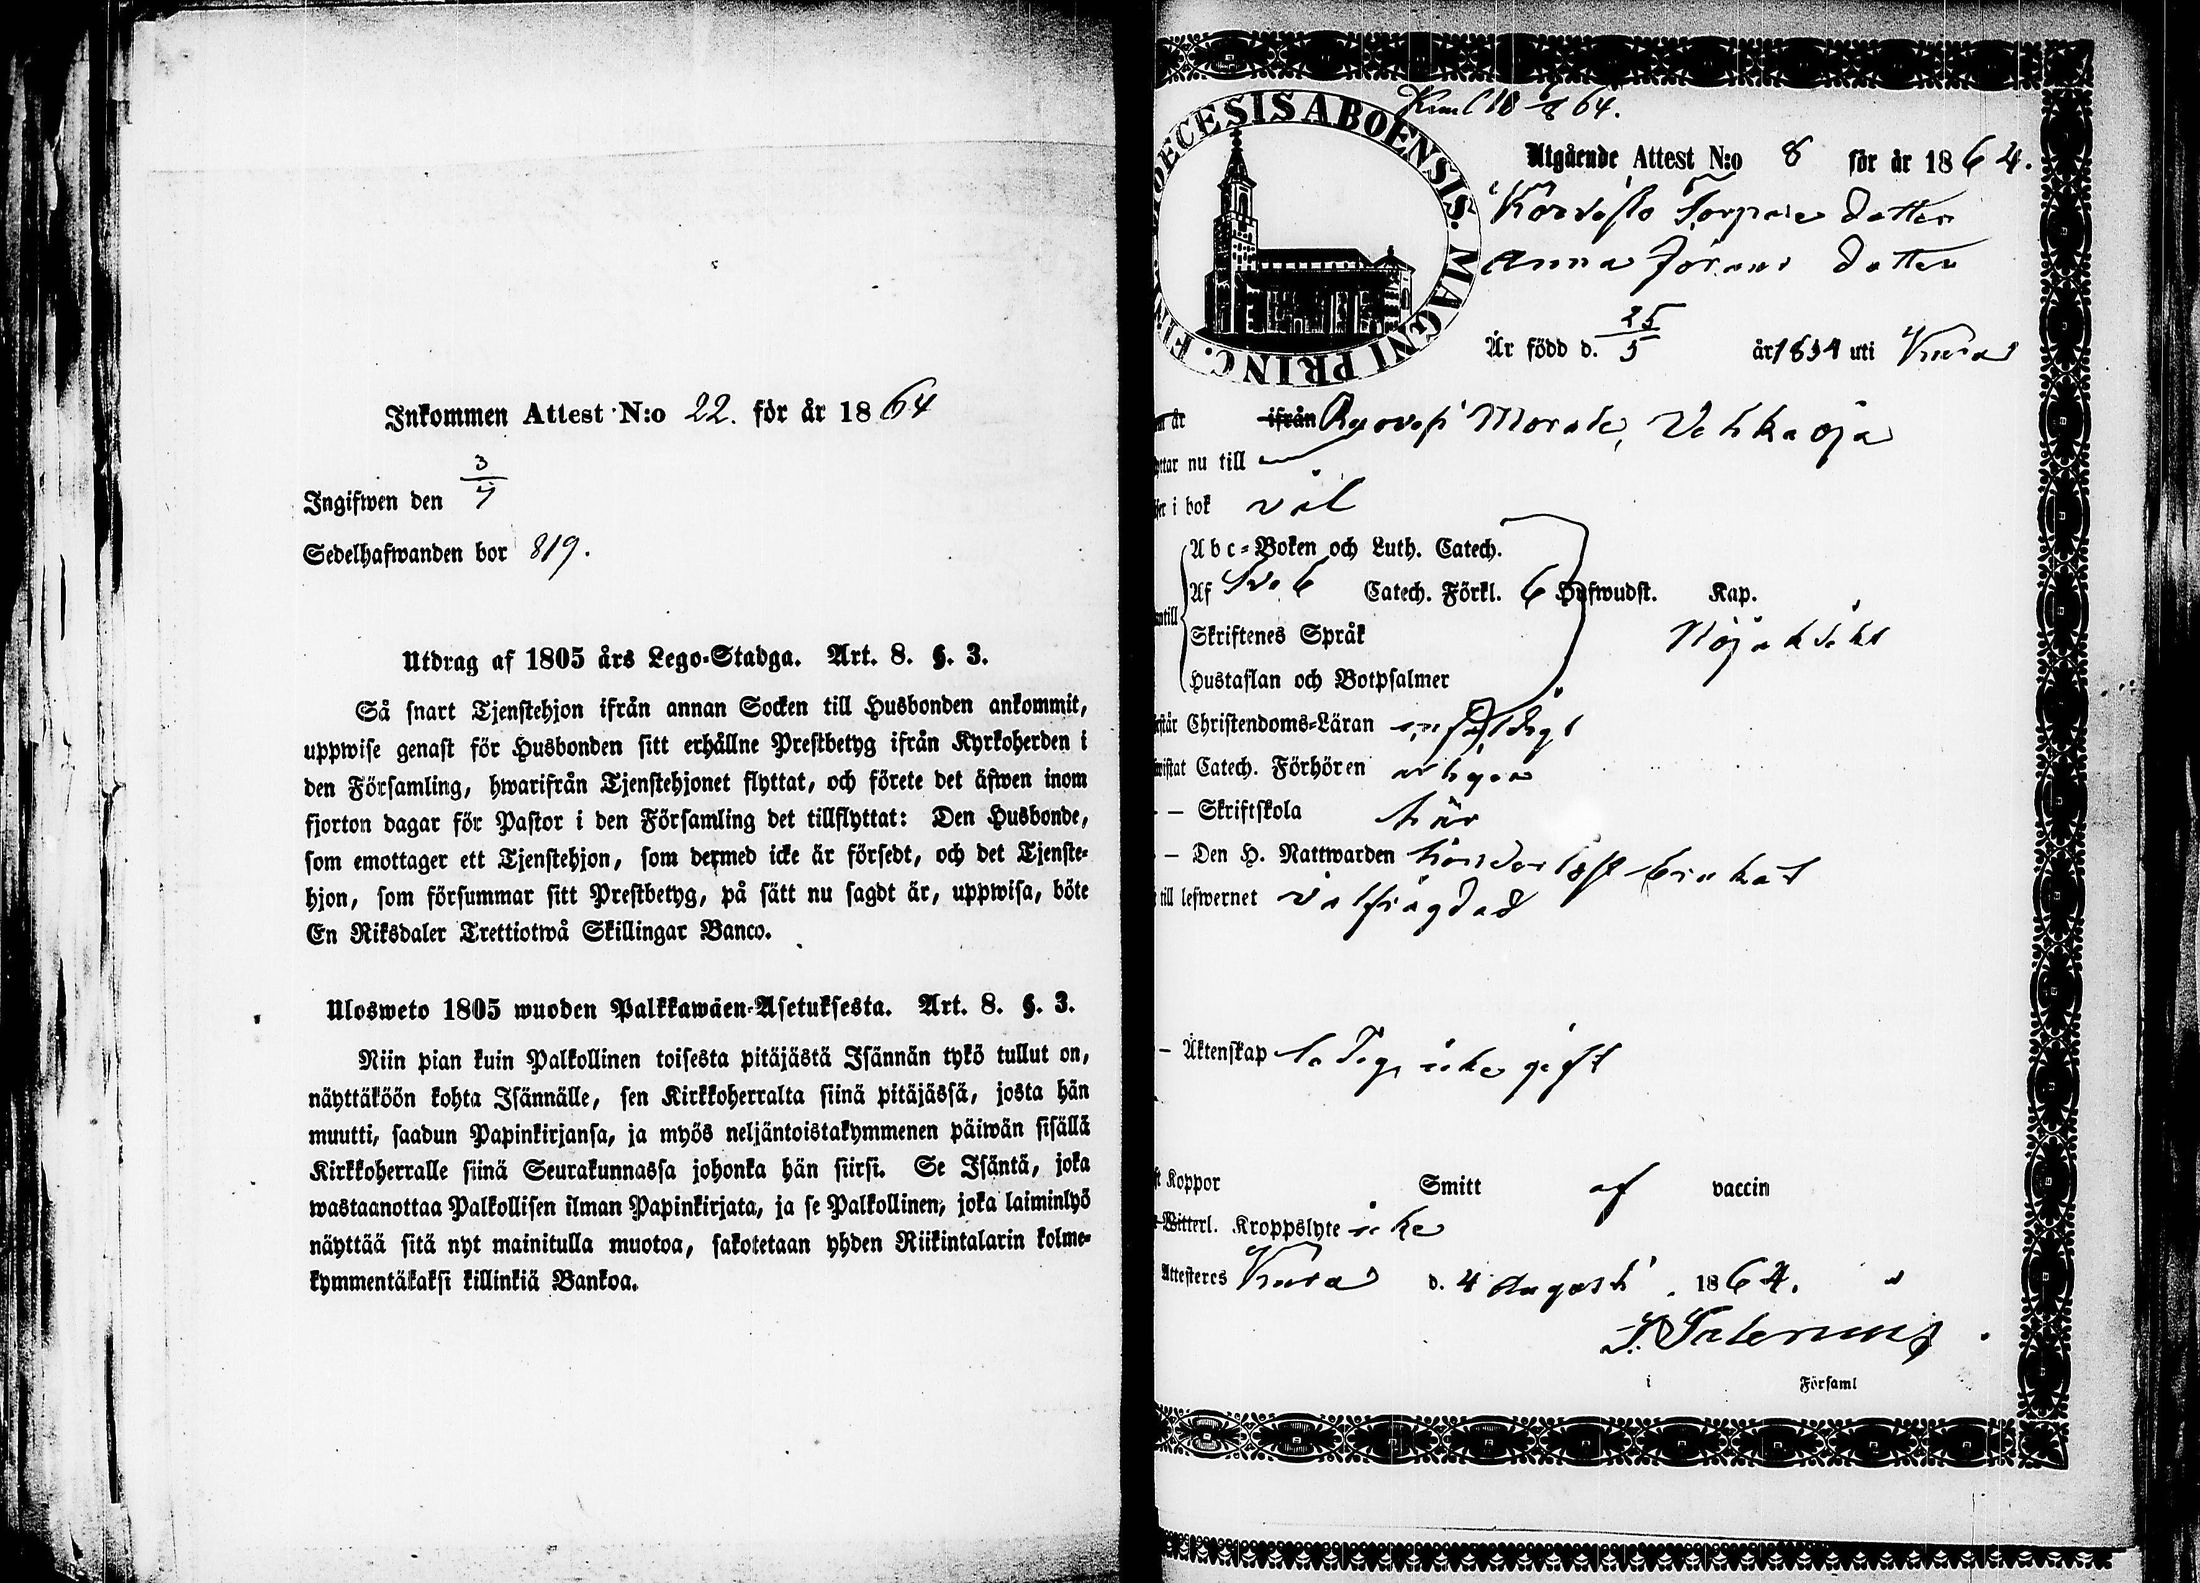 Inkommen Attest N:o 22. för år 1864
Ingifwen den 3/4
Sedelhafwanden bor 819.
Utdrag af 1805 års Lego-Stadga. Art. 8. §. 3.
Så snart Tjenstehjon ifrån annan Socken till Husbonden ankommit,
uppwise genast för Husbonden sitt erhållne Prestbetyg ifrån Kyrkoherden i
den Församling, hwarifrån Tjenstehjonet flyttat, och förete det äfwen inom
fjorton dagar för Pastor i den Församling det tillflyttat: Den Husbonde,
som emottager ett Tjenstehjon, som dermed icke är försedt, och det Tjenste-
hjon, som försummar sitt Prestbetyg, på sätt nu sagdt är, uppwisa, böte
En Riksdaler Trettiotwå Skillingar Banco.
Ulosweto 1805 wuoden Palkkawäen-Asetuksesta. Art. 8. §. 3.
Niin pian kuin Palkollinen toisesta pitäjästä Isännän tykö tullut on,
näyttäköön kohta Isännälle, sen Kirkkoherralta siinä pitäjässä, josta hän
muutti, saadun Papinkirjansa, ja myös neljäntoistakymmenen päiwän sisällä
Kirkkoherralle siinä Seurakunnassa johonka hän siirsi. Se Isäntä, joka
wastaanottaa Palkollisen ilman Papinkirjata, ja se Palkollinen, joka laiminlyö
näyttää sitä nyt mainitulla muotoa, sakotetaan yhden Riikintalarin kolme-
kymmentäkaksi killinkiä Bankoa.
DIOECESIS ABOENSIS. MAGNI PRINC. FIN
64.
Utgående Attest N:o 8 för år 1864.
Torpare dotter
Anna Jörans dotter
Är född d. 25/5 år 1834 uti Kiura
år ifrån
nu till
i bok väl
Abc-Boken och Luth. Catech.
Af Sveb Catech. Förkl. 6 Hufwudst. Kap.
Skriftenes Språk Nöjaktikt
Hustaflan och Botpsalmer
Christendoms-Läran enfaldigt
Catech. Förhören
– Skriftskola här
– Den H. Nattwarden brukat
till lefwernet välfrägdad
– Äktenskap ledig, icke gift
Koppor Smitt af vaccin
Witterl. Kroppslyte icke
Attesteres d. 4 Augusti 1864.
i Församl